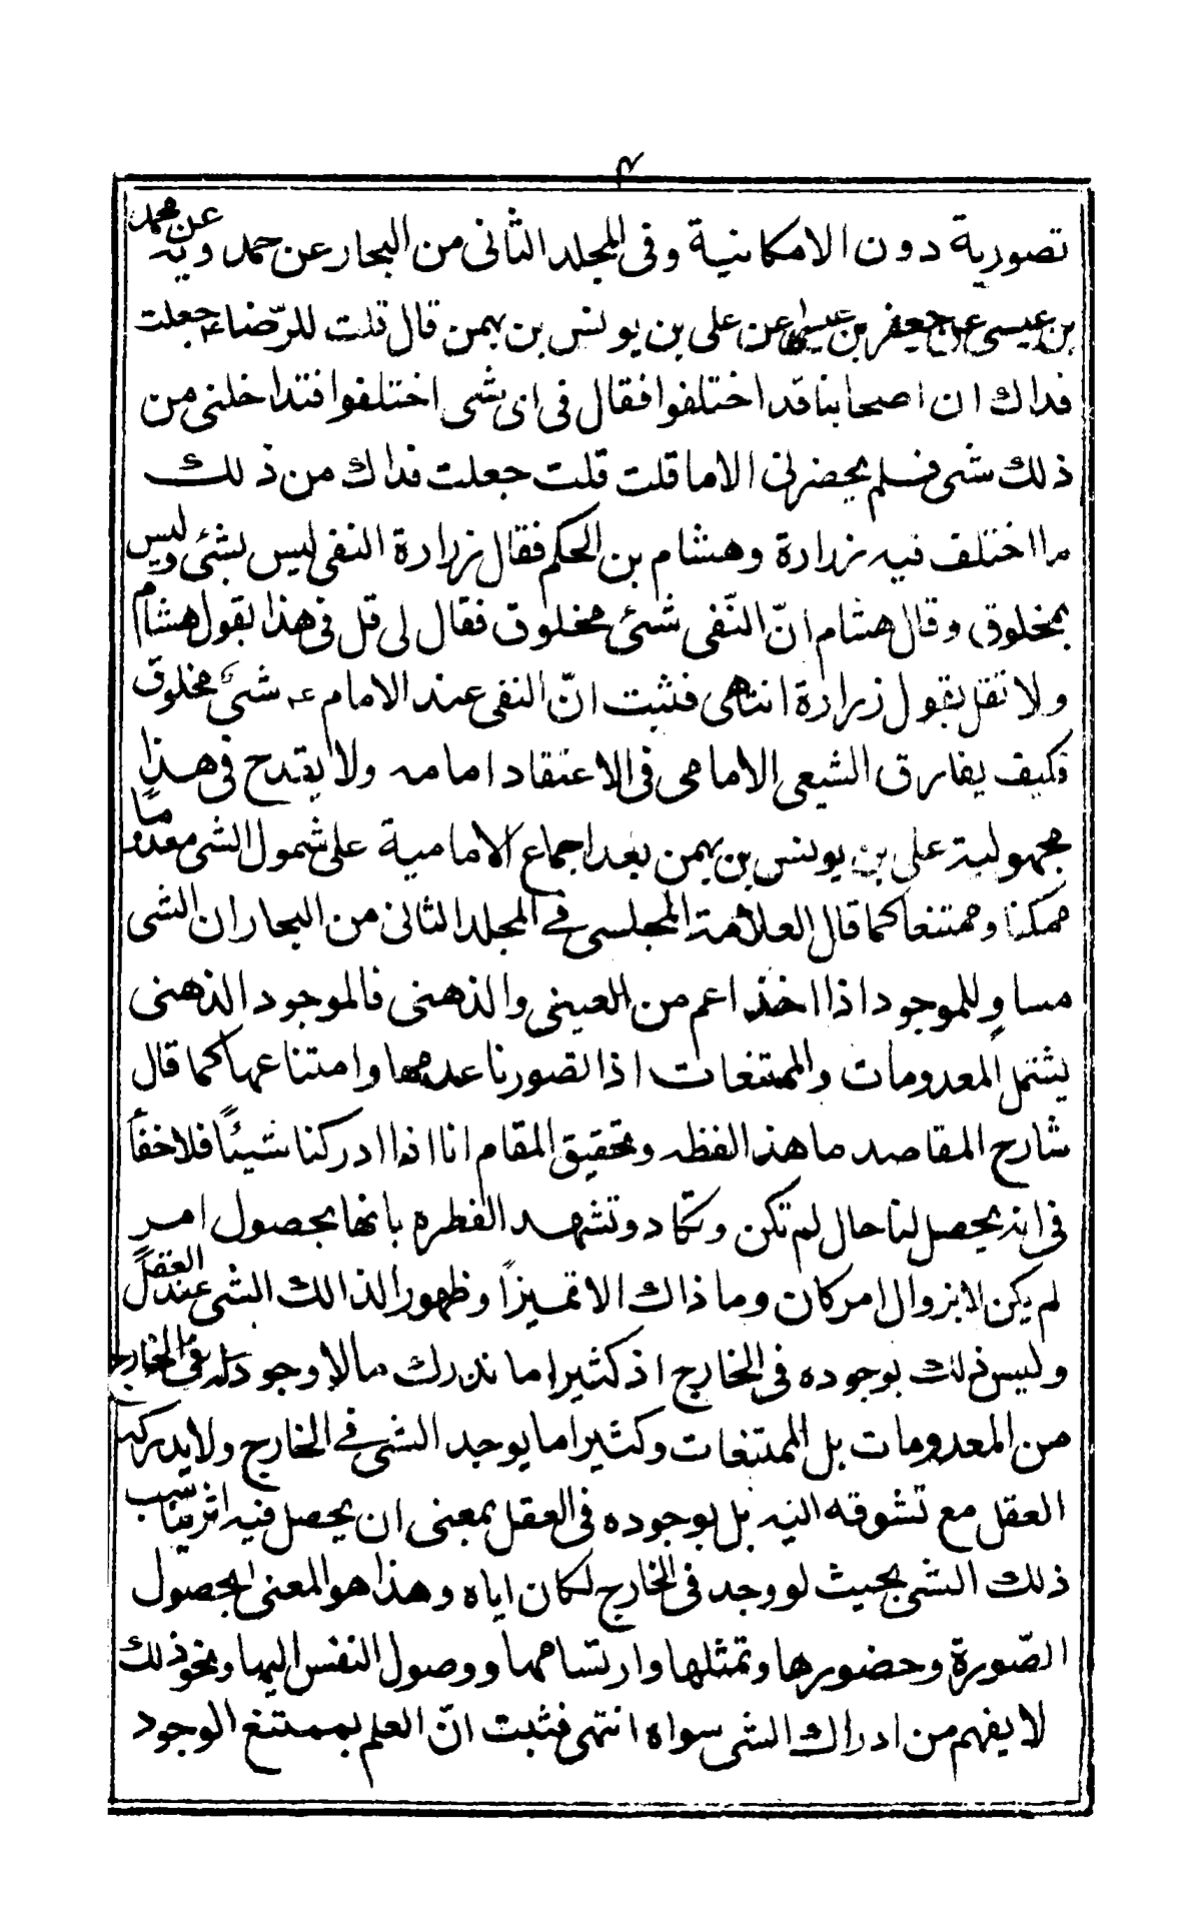 ٣
تصورية دون الامكانية وفى المجلد الثانى من البحار عن حمدويه عن محمد
بن عيسى عن جعفر بن عيسى عن على بن يونس بن بهمن قال قلت للرّضاء جعلت
فداك ان اصحابنا قد اختلفوا فقال فى اى شى اختلفوا فتداخلنى من
ذلك شى فلم يحضرنى الا ما قلت قلت جعلت فداك من ذلك
ما اختلف فيه زرارة وهشام بن الحكم فقال زرارة النفى ليس بشئ وليس
بمخلوق وقال هشام انّ النّفى شئ مخلوق فقال لى قل فى هذا بقول هشام
ولا تقل بقول زرارة انتهى فثبت انّ النفى عند الامام ع شئ مخلوق
فكيف يفارق الشيعى الامامى فى الاعتقاد امامه ولا يقدح فى هذا
مجهولية على بن يونس بن بهمن بعد اجماع الامامية على شمول الشى معدوماً
ممكنا وممتنعا كما قال العلامة المجلسى فى المجلد الثانى من البحار ان الشى
مساوٍ للموجود اذا اخذ اعم من العينى والذهنى فالموجود الذهنى
يشتمل المعدومات والممتنعات اذا تصورنا عدمها وامتناعها كما قال
شارح المقاصد ما هذا لفظه وتحقيق المقام انا اذا ادركنا شيئًا فلا خفأ
فى انه يحصل لنا حال لم تكن وتكاد وتشهد الفطرة بانها بحصول امر
لم يكن لا بزوال امر كان وما ذاك الا تميزاً وظهورا لذالك الشى عند العقل
وليس ذلك بوجوده فى الخارج اذ كثيرا ما ندرك ما لا وجود له فى الخارج
من المعدومات بل الممتنعات وكثيرا ما يوجد الشى فى الخارج ولا يدركه
العقل مع تشوقه اليه بل بوجوده فى العقل بمعنى ان يحصل فيه اثر يناسب
ذلك الشى بحيث لو وجد فى الخارج لكان اياه وهذا هو المعنى بحصول
الصّورة وحضورها وتمثلها وارتسامها ووصول النفس اليها ونحو ذلك
لا يفهم من ادراك الشى سواه انتهى فثبت انّ العلم بممتنع الوجود